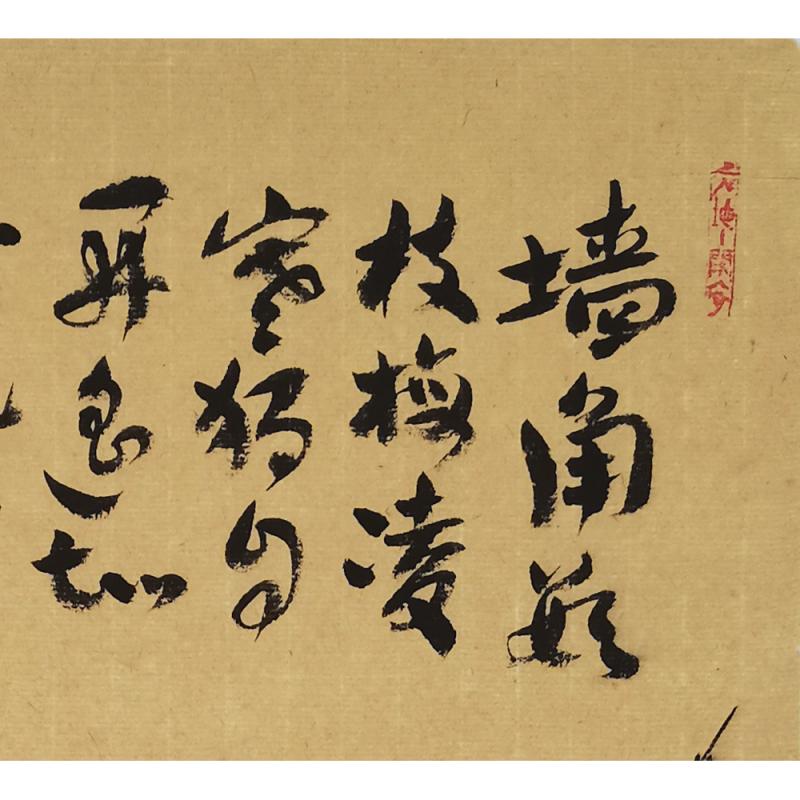 墙角数
枝梅凌
寒独自
开遥知